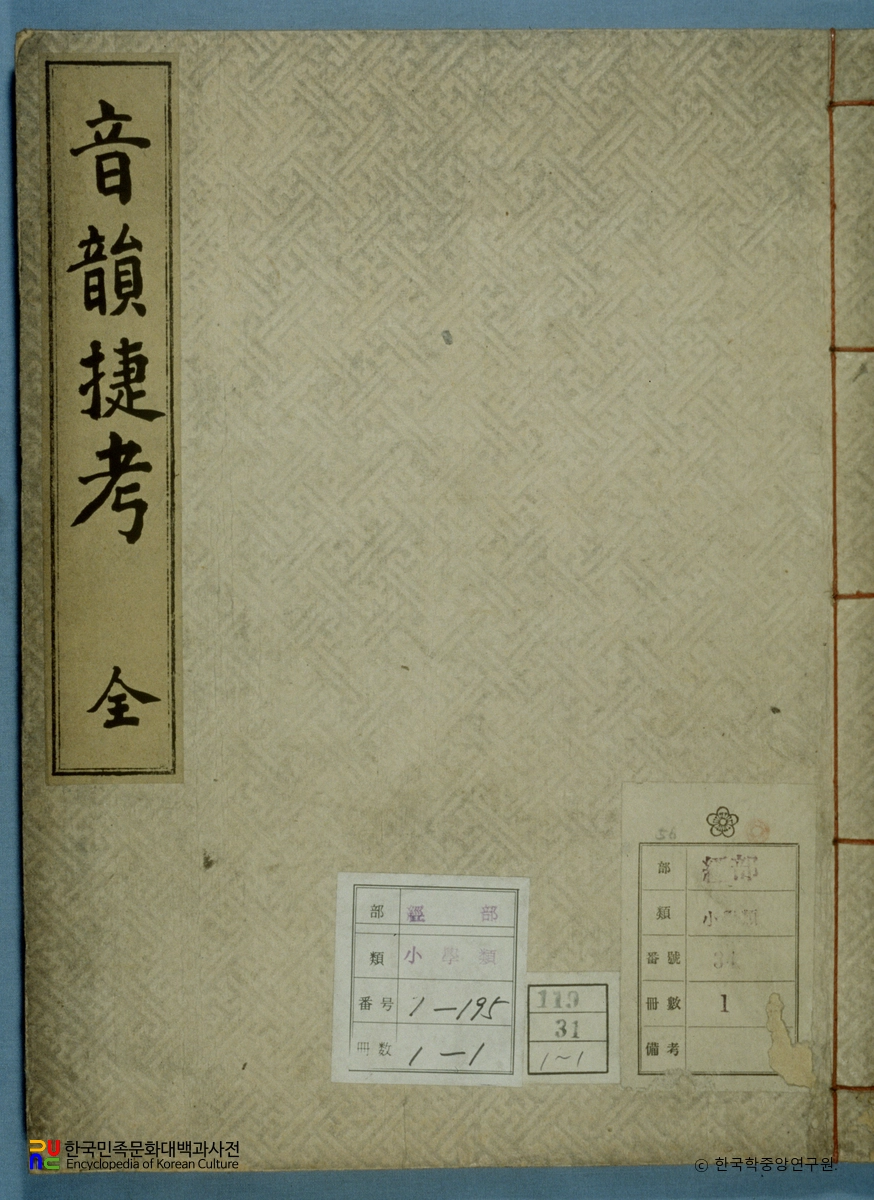 音韻捷考 全
部 經部
類 小學類
番号 1-195
冊数 1-1
119
31
1~1
56
部 經部
類 小學類
番號 34
冊數 1
備考
한국민족문화대백과사전
Encyclopedia of Korean Culture
© 한국학중앙연구원